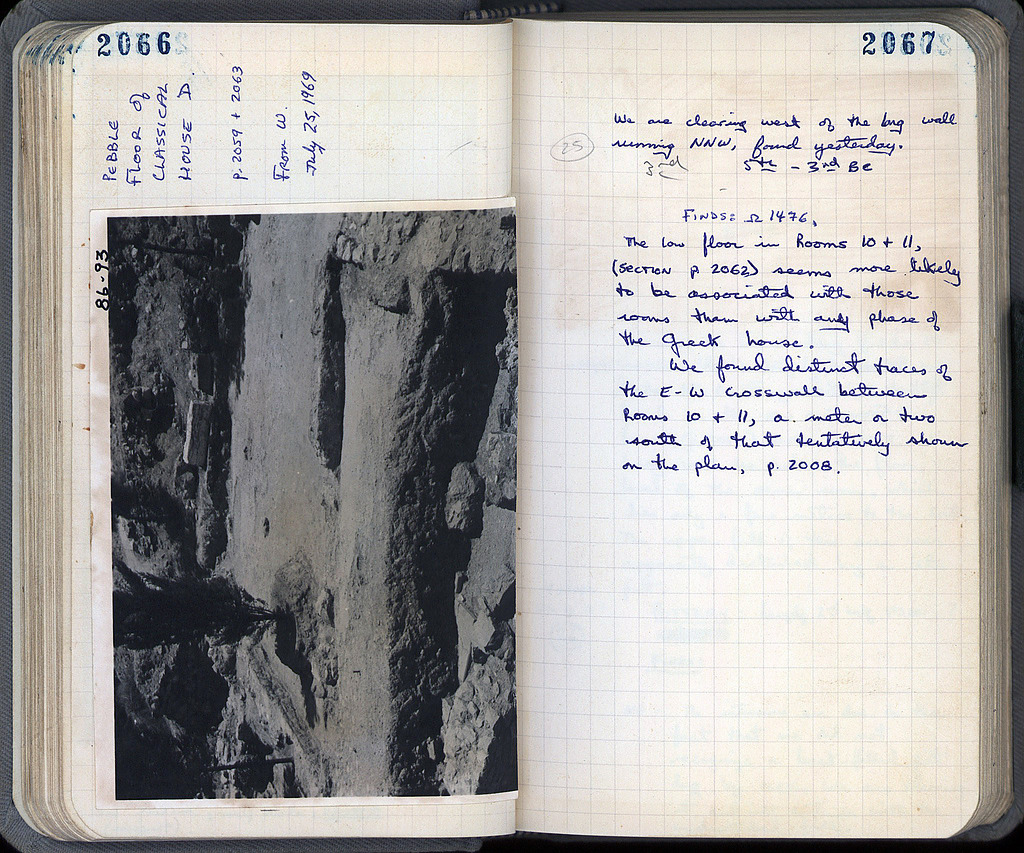 2066
PEBBLE
FLOOR OF
CLASSICAL
HOUSE D.
p. 2059 + 2063
FROM W.
July 25, 1969
86-93
2067
We are clearing west of the big wall
running NNW, found yesterday.
25
3rd c
5th - 3rd BC
FINDS: Ω 1476.
The low floor in Rooms 10 + 11,
(SECTION p 2062) seems more likely
to be associated with those
rooms than with any phase of
the Greek house.
We found distinct traces of
the E-W crosswall between
Rooms 10 + 11, a meter or two
south of that tentatively shown
on the plan, p. 2008.